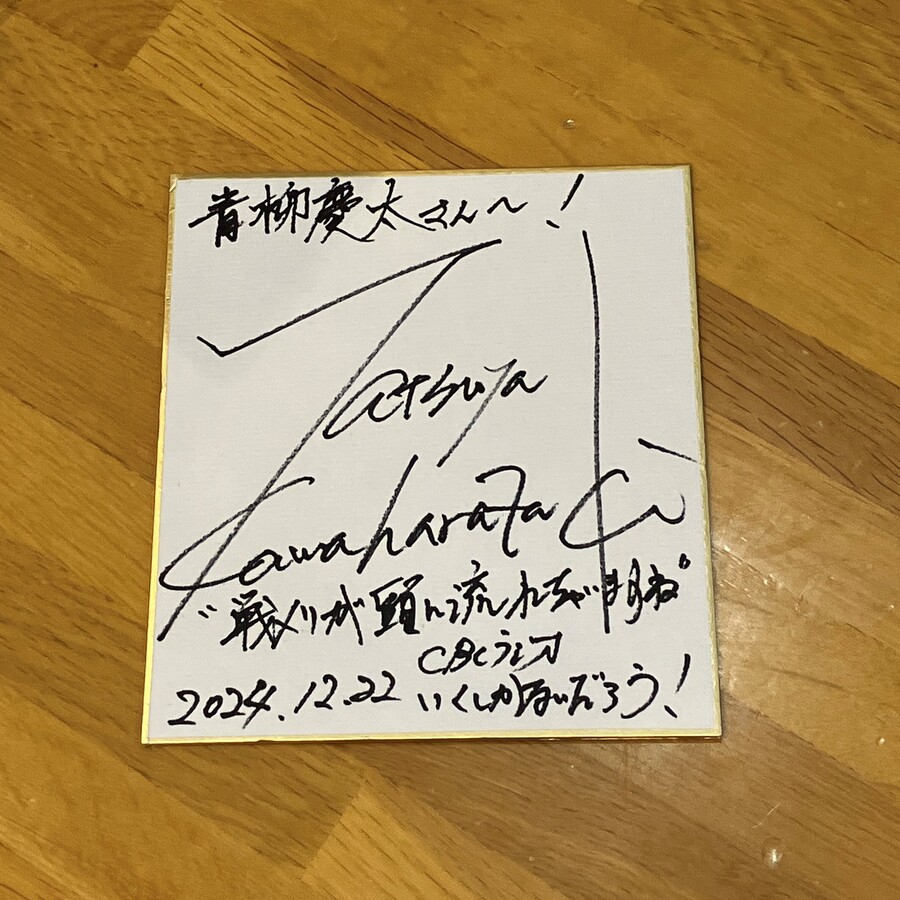 青柳慶太さんへ!
Tatsuya
Kawarataki
"戦メリが頭に流れちゃいますね"
CBCラジオ
2024.12.22 いくしかないだろう!